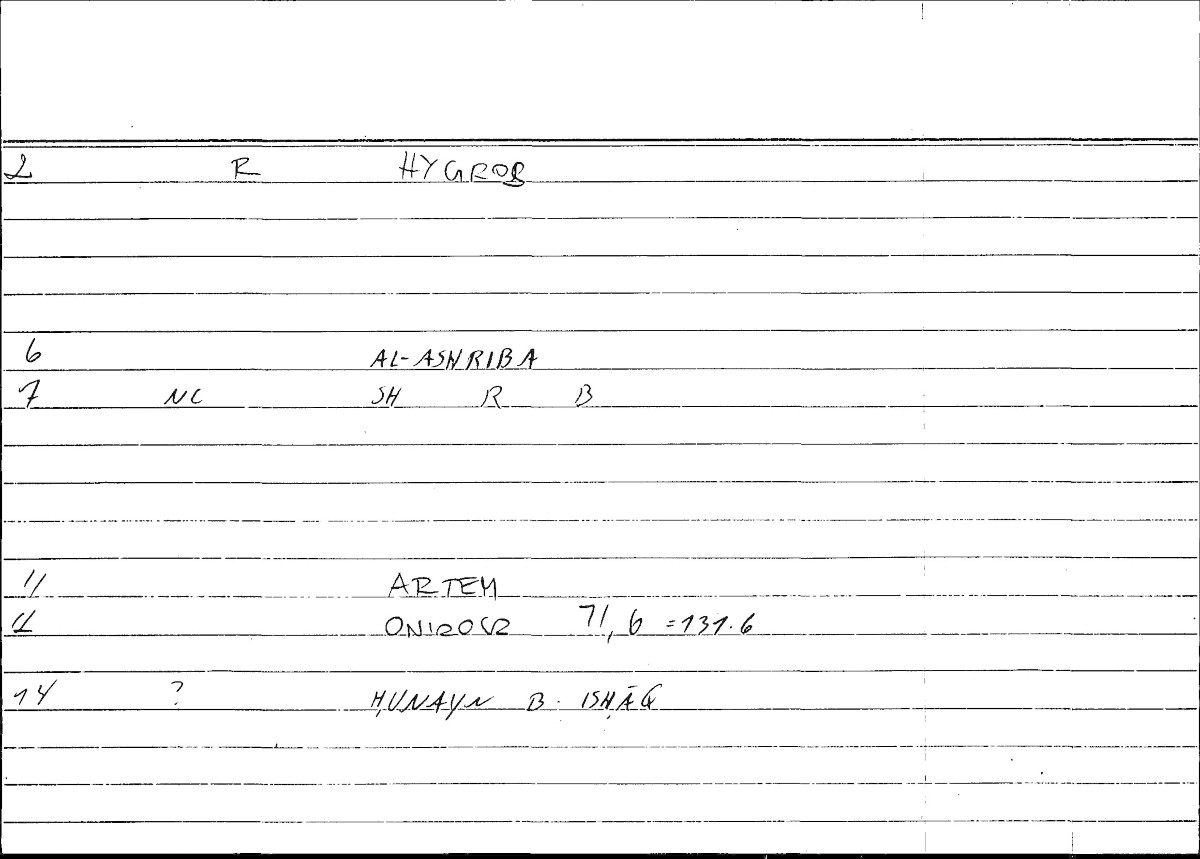 2 R HYGROB
6 AL-ASHRIBA
7 NC SH R B
11 ARTEM
12 ONIROCR 71, 6 = 131.6
14 ? ḤUNAYN B. ISḤĀQ